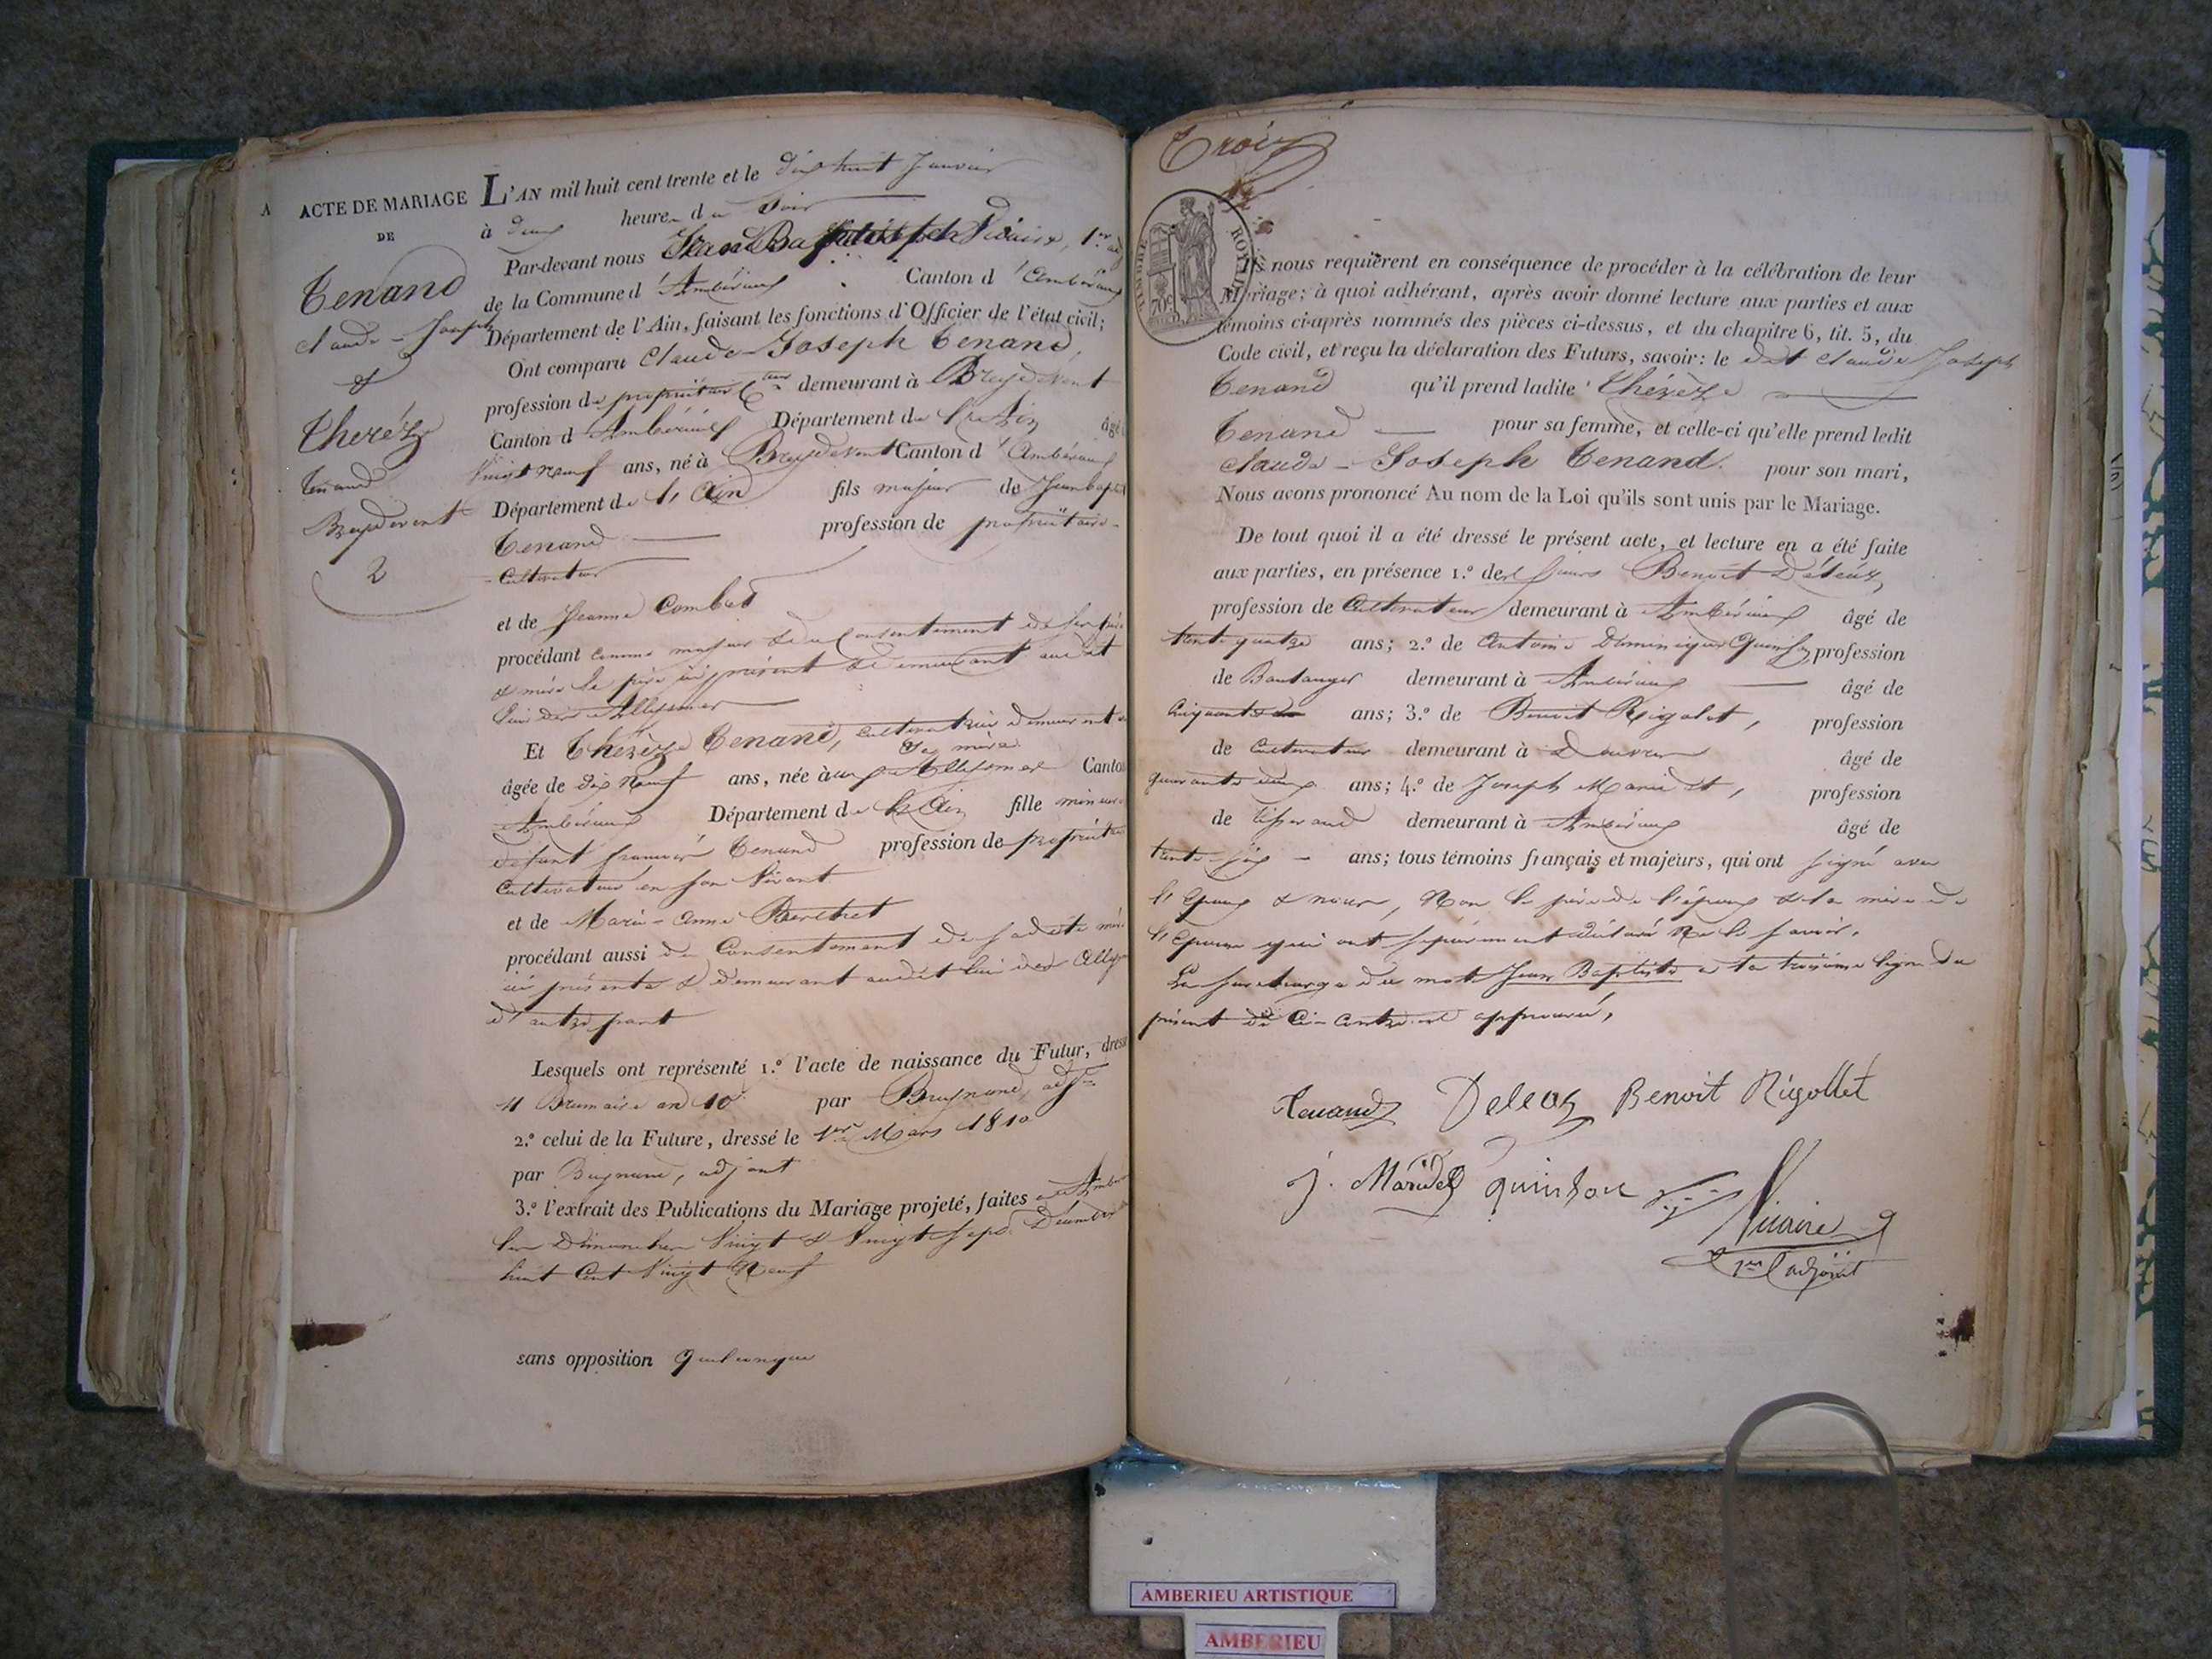 A
ACTE DE MARIAGE
DE
Tenand
claude - Joseph
&
Therèze
Tenand
Breydevent
2
L'AN mil huit cent trente et le dix huit Janvier
à deux heures du Soir
Par-devant nous Jean Baptiste Vicaire, 1er
de la Commune d'Ambérieux Canton d'Ambérieux
Département de l'Ain, faisant les fonctions d'Officier de l'état civil;
Ont comparu Claude-Joseph Tenand,
profession de propriétaire demeurant à Breydevent
Canton d'Ambérieux Département de l'Ain âgé
Vingt neuf ans, né à Breydevent Canton d'Ambérieux
Département de l'Ain fils majeur de Jean bap
Tenand profession de propriétaire
Cultivateur
et de Jeanne Combet
procédant comme majeur & du Consentement de ses père
& mère le père ici présent & demeurant audit
lieu
Et Thérèze Tenand, cultivatrice demeurant
& sa mère
âgée de Dix Neuf ans, née à Canton
Ambérieux Département de l'Ain fille mineure
défunt françois Tenand profession de propriétaire
Cultivateur en son vivant
et de Marie-Anne Berthet
procédant aussi du Consentement de sadite mère
ici présente & demeurant audit lieu
d'autre part
Lesquels ont représenté 1.º l'acte de naissance du Futur, dressé
11 Brumaire an 10 par
2.º celui de la Future, dressé le 1er Mars 1810
par adjoint
3.º l'extrait des Publications du Mariage projeté, faites
les Dimanches Vingt & Vingt Sept Décembre
huit Cent Vingt Neuf
sans opposition Quelconque
Trois
TIMBRE ROYAL
70c
Ils nous requièrent en conséquence de procéder à la célébration de leur
Mariage; à quoi adhérant, après avoir donné lecture aux parties et aux
témoins ci-après nommés des pièces ci-dessus, et du chapitre 6, tit. 5, du
Code civil, et reçu la déclaration des Futurs, savoir: le dit claude Joseph
Tenand qu'il prend ladite Thérèze
Tenand pour sa femme, et celle-ci qu'elle prend ledit
claude - Joseph Tenand. pour son mari,
Nous avons prononcé Au nom de la Loi qu'ils sont unis par le Mariage.
De tout quoi il a été dressé le présent acte, et lecture en a été faite
aux parties, en présence 1.º des Sieurs Benoit Déléaz
profession de Cultivateur demeurant à Ambérieux âgé de
trente quatre ans; 2.º de Antoine Dominique Quinson profession
de Boulanger demeurant à Ambérieux âgé de
Cinquante ans; 3.º de Benoit Rigolet, profession
de Cultivateur demeurant à Douvres âgé de
quarante deux ans; 4.º de Joseph Maridet, profession
de tisserand demeurant à Ambérieux âgé de
trente-six - ans; tous témoins français et majeurs, qui ont signé avec
l'époux & nous, Non le père de l'époux & la mère de
l'épouse qui ont séparément déclaré Ne le savoir.
La surcharge du mot Jean Baptiste a la troisième ligne du
présent & Ci-contre est approuvée,
Tenand Deleaz Benoit Rigollet
J. Maridet quinson
Vicaire
1er adjoint
AMBERIEU ARTISTIQUE
AMBERIEU